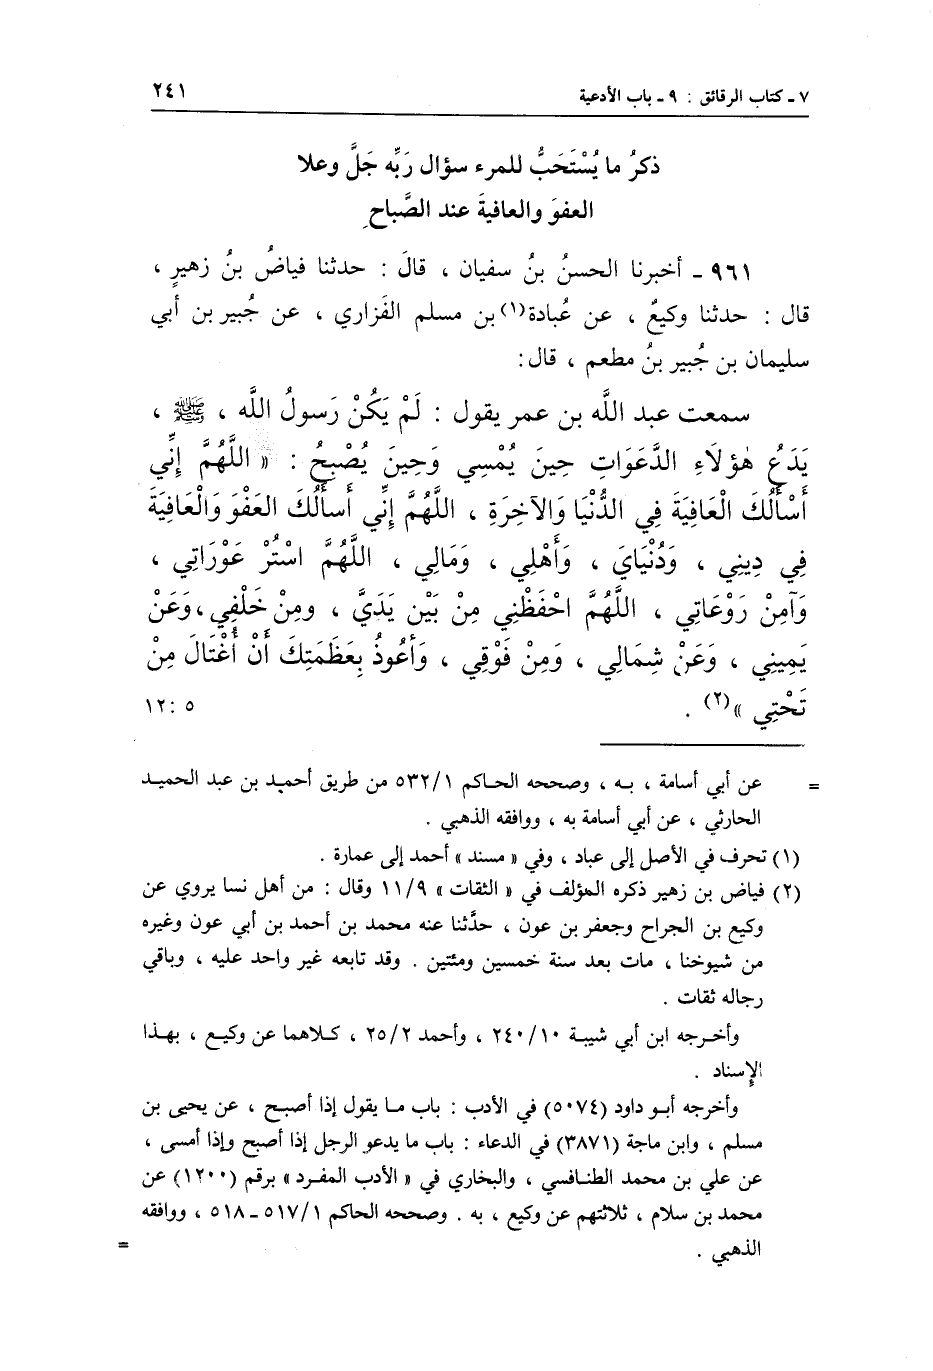 ٧ ـ كتاب الرقائق : ٩ ـ باب الأدعية ٢٤١
ذكرُ ما يُسْتَحَبُّ للمرء سؤال رَبِّه جَلَّ وعلا
العفوَ والعافيةَ عند الصَّباحِ
٩٦١ ـ أخبرنا الحسنُ بنُ سفيان ، قالَ : حدثنا فياضُ بنُ زهيرٍ ،
قال : حدثنا وكيعٌ ، عن عُبادة(١) بن مسلم الفَزاري ، عن جُبير بن أبي
سليمان بن جُبير بنُ مطعم ، قال :
سمعت عبد اللَّه بن عمر يقول : لَمْ يَكُنْ رَسولُ اللَّه ، ﷺ ،
يَدَعُ هٰؤلَاءِ الدَّعَوَاتِ حِينَ يُمْسِي وَحِينَ يُصْبِحُ : « اللَّهُمَّ إِنِّي
أَسْأَلُكَ الْعَافِيَةَ فِي الدُّنْيَا وَالآخِرَةِ ، اللَّهُمَّ إِنِّي أَسأَلُكَ العَفْوَ وَالْعَافِيَةَ
فِي دِينِي ، وَدُنْيَايَ ، وَأَهْلِي ، وَمَالِي ، اللَّهُمَّ اسْتُرْ عَوْرَاتِي ،
وَآمِنْ رَوْعَاتِي ، اللَّهُمَّ احْفَظْنِي مِنْ بَيْن يَدَيَّ ، ومِنْ خَلْفِي ، وَعَنْ
يَمِينِي ، وَعَنْ شِمَالِي ، وَمِنْ فَوْقِي ، وَأَعُوذُ بِعَظَمَتِكَ أَنْ أُغْتَالَ مِنْ
تَحْتِي »(٢) . ٥ : ١٢
= عن أبي أسامة ، به ، وصححه الحاكم ٥٣٢/١ من طريق أحمد بن عبد الحميد
الحارثي ، عن أبي أسامة به ، ووافقه الذهبي .
(١) تحرف في الأصل إلى عباد ، وفي « مسند » أحمد إلى عمارة .
(٢) فياض بن زهير ذكره المؤلف في « الثقات » ١١/٩ وقال : من أهل نسا يروي عن
وكيع بن الجراح وجعفر بن عون ، حدَّثنا عنه محمد بن أحمد بن أبي عون وغيره
من شيوخنا ، مات بعد سنة خمسين ومئتين . وقد تابعه غير واحد عليه ، وباقي
رجاله ثقات .
وأخرجه ابن أبي شيبة ٢٤٠/١٠ ، وأحمد ٢٥/٢ ، كلاهما عن وكيع ، بهذا
الإسناد .
وأخرجه أبو داود (٥٠٧٤) في الأدب : باب ما يقول إذا أصبح ، عن يحيى بن
مسلم ، وابن ماجة (٣٨٧١) في الدعاء : باب ما يدعو الرجل إذا أصبح وإذا أمسى ،
عن علي بن محمد الطنافسي ، والبخاري في « الأدب المفرد » برقم (١٢٠٠) عن
محمد بن سلام ، ثلاثتهم عن وكيع ، به . وصححه الحاكم ٥١٧/١ ـ ٥١٨ ، ووافقه
الذهبي . =